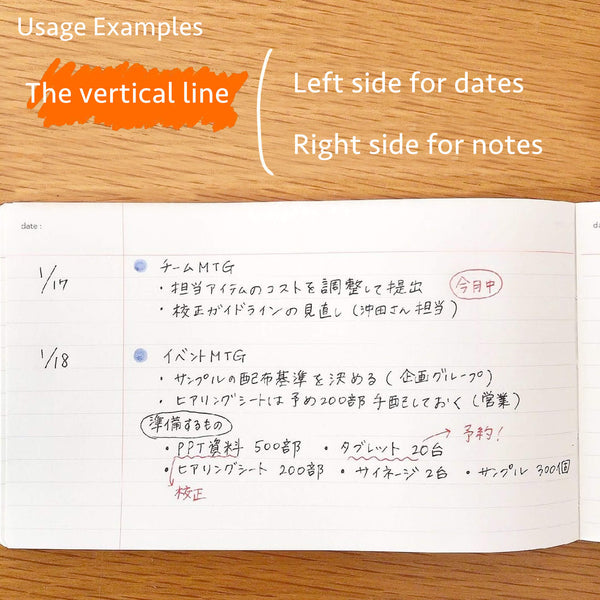 Usage Examples
The vertical line
Left side for dates
Right side for notes
date :
d
1/17
チームMTG
・担当アイテムのコストを調整して提出 今月中
・校正ガイドラインの見直し(沖田さん担当)
1/18
イベントMTG
・サンプルの配布基準を決める(企画グループ)
・ヒアリングシートは予め200部手配しておく(営業)
準備するもの
予約!
・PPT資料 500部 ・タブレット 20台
・ヒアリングシート 200部 ・サイネージ 2台 ・サンプル 300個
校正